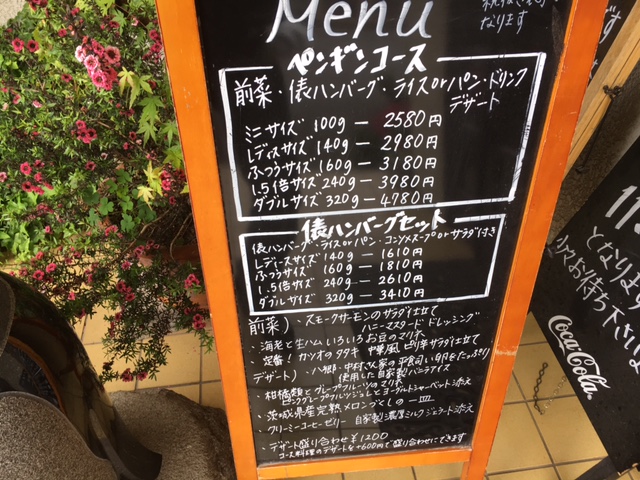 Menu
なります
ペンギンコース
前菜・俵ハンバーグ・ライスorパン・ドリンク
デザート
ミニサイズ 100g — 2580円
レディスサイズ 140g — 2980円
ふつうサイズ 160g — 3180円
1.5倍サイズ 240g — 3980円
ダブルサイズ 320g — 4780円
俵ハンバーグセット
俵ハンバーグ・ライスorパン・コンソメスープorサラダ付き
レディースサイズ 140g — 1610円
ふつうサイズ 160g — 1810円
1.5倍サイズ 240g — 2610円
ダブルサイズ 320g — 3410円
前菜)・スモークサーモンのサラダ仕立て
ハニーマスタードドレッシング
・海老と生ハム いろいろお豆のマリネ
定番!カツオのタタキ 中華風 ピリ辛サラダ仕立て
デザート)・八郷・中村さん家の平飼い卵をたっぷり
使用した自家製バニラアイス
・柑橘類とグレープフルーツのマリネ
ピンクグレープフルツジュレとヨーグルトシャーベット添え
・茨城県産完熟メロンづくしの一皿
・クリーミーコーヒーゼリー 自家製濃厚ミルクジェラート添え
・デザート盛り合わせ ¥1200
コース料理のデザートを+600円で盛り合わせにできます
となります
お待ち下さい
Coca-Cola